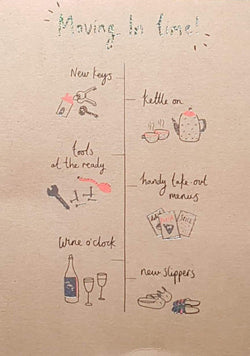 Moving In Time!
New keys
kettle on
tools
at the ready
handy take-out
menus
Wine o'clock
new slippers